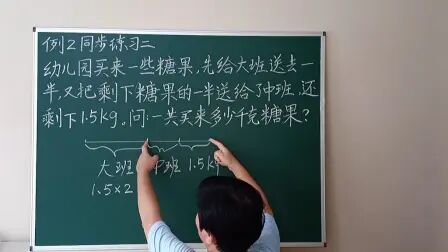 例2同步练习二
幼儿园买来一些糖果,先给大班送去一
半,又把剩下糖果的一半送给了中班,还
剩下1.5kg。问:一共买来多少千克糖果?
大班 中班 1.5kg
1.5×2